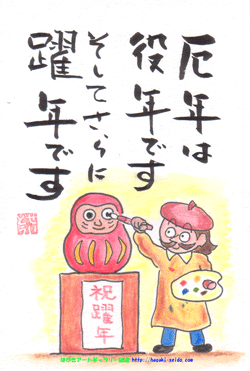 厄年は
役年です
そしてさらに
躍年です
祝躍年
はがきアートギャラリー
http://hagaki.seido.com